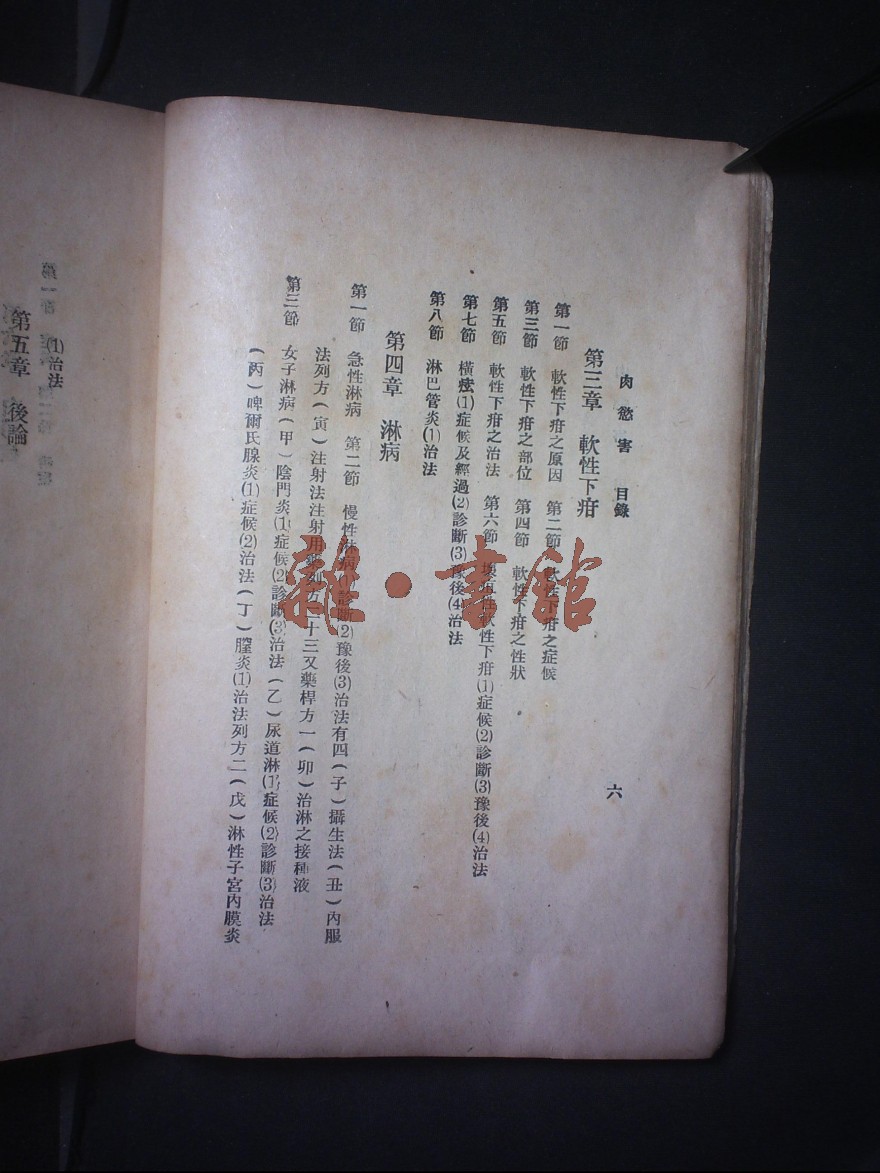 肉慾害 目錄 六
第三章 軟性下疳
第一節 軟性下疳之原因 第二節 軟性下疳之症候
第三節 軟性下疳之部位 第四節 軟性下疳之性狀
第五節 軟性下疳之治法 第六節 壞疽性軟性下疳(1)症候(2)診斷(3)豫後(4)治法
第七節 橫痃(1)症候及經過(2)診斷(3)豫後(4)治法
第八節 淋巴管炎(1)治法
第四章 淋病
第一節 急性淋病 第二節 慢性淋病(1)診斷(2)豫後(3)治法有四(子)攝生法(丑)內服
法列方(寅)注射法注射用藥列方二十三又藥桿方一(卯)治淋之接種液
第三節 女子淋病(甲)陰門炎(1)症候(2)診斷(3)治法(乙)尿道淋(1)症候(2)診斷(3)治法
(丙)啤爾氏腺炎(1)症候(2)治法(丁)膣炎(1)治法列方二(戊)淋性子宮內膜炎
(1)治法
第五章 後論
雜·書館